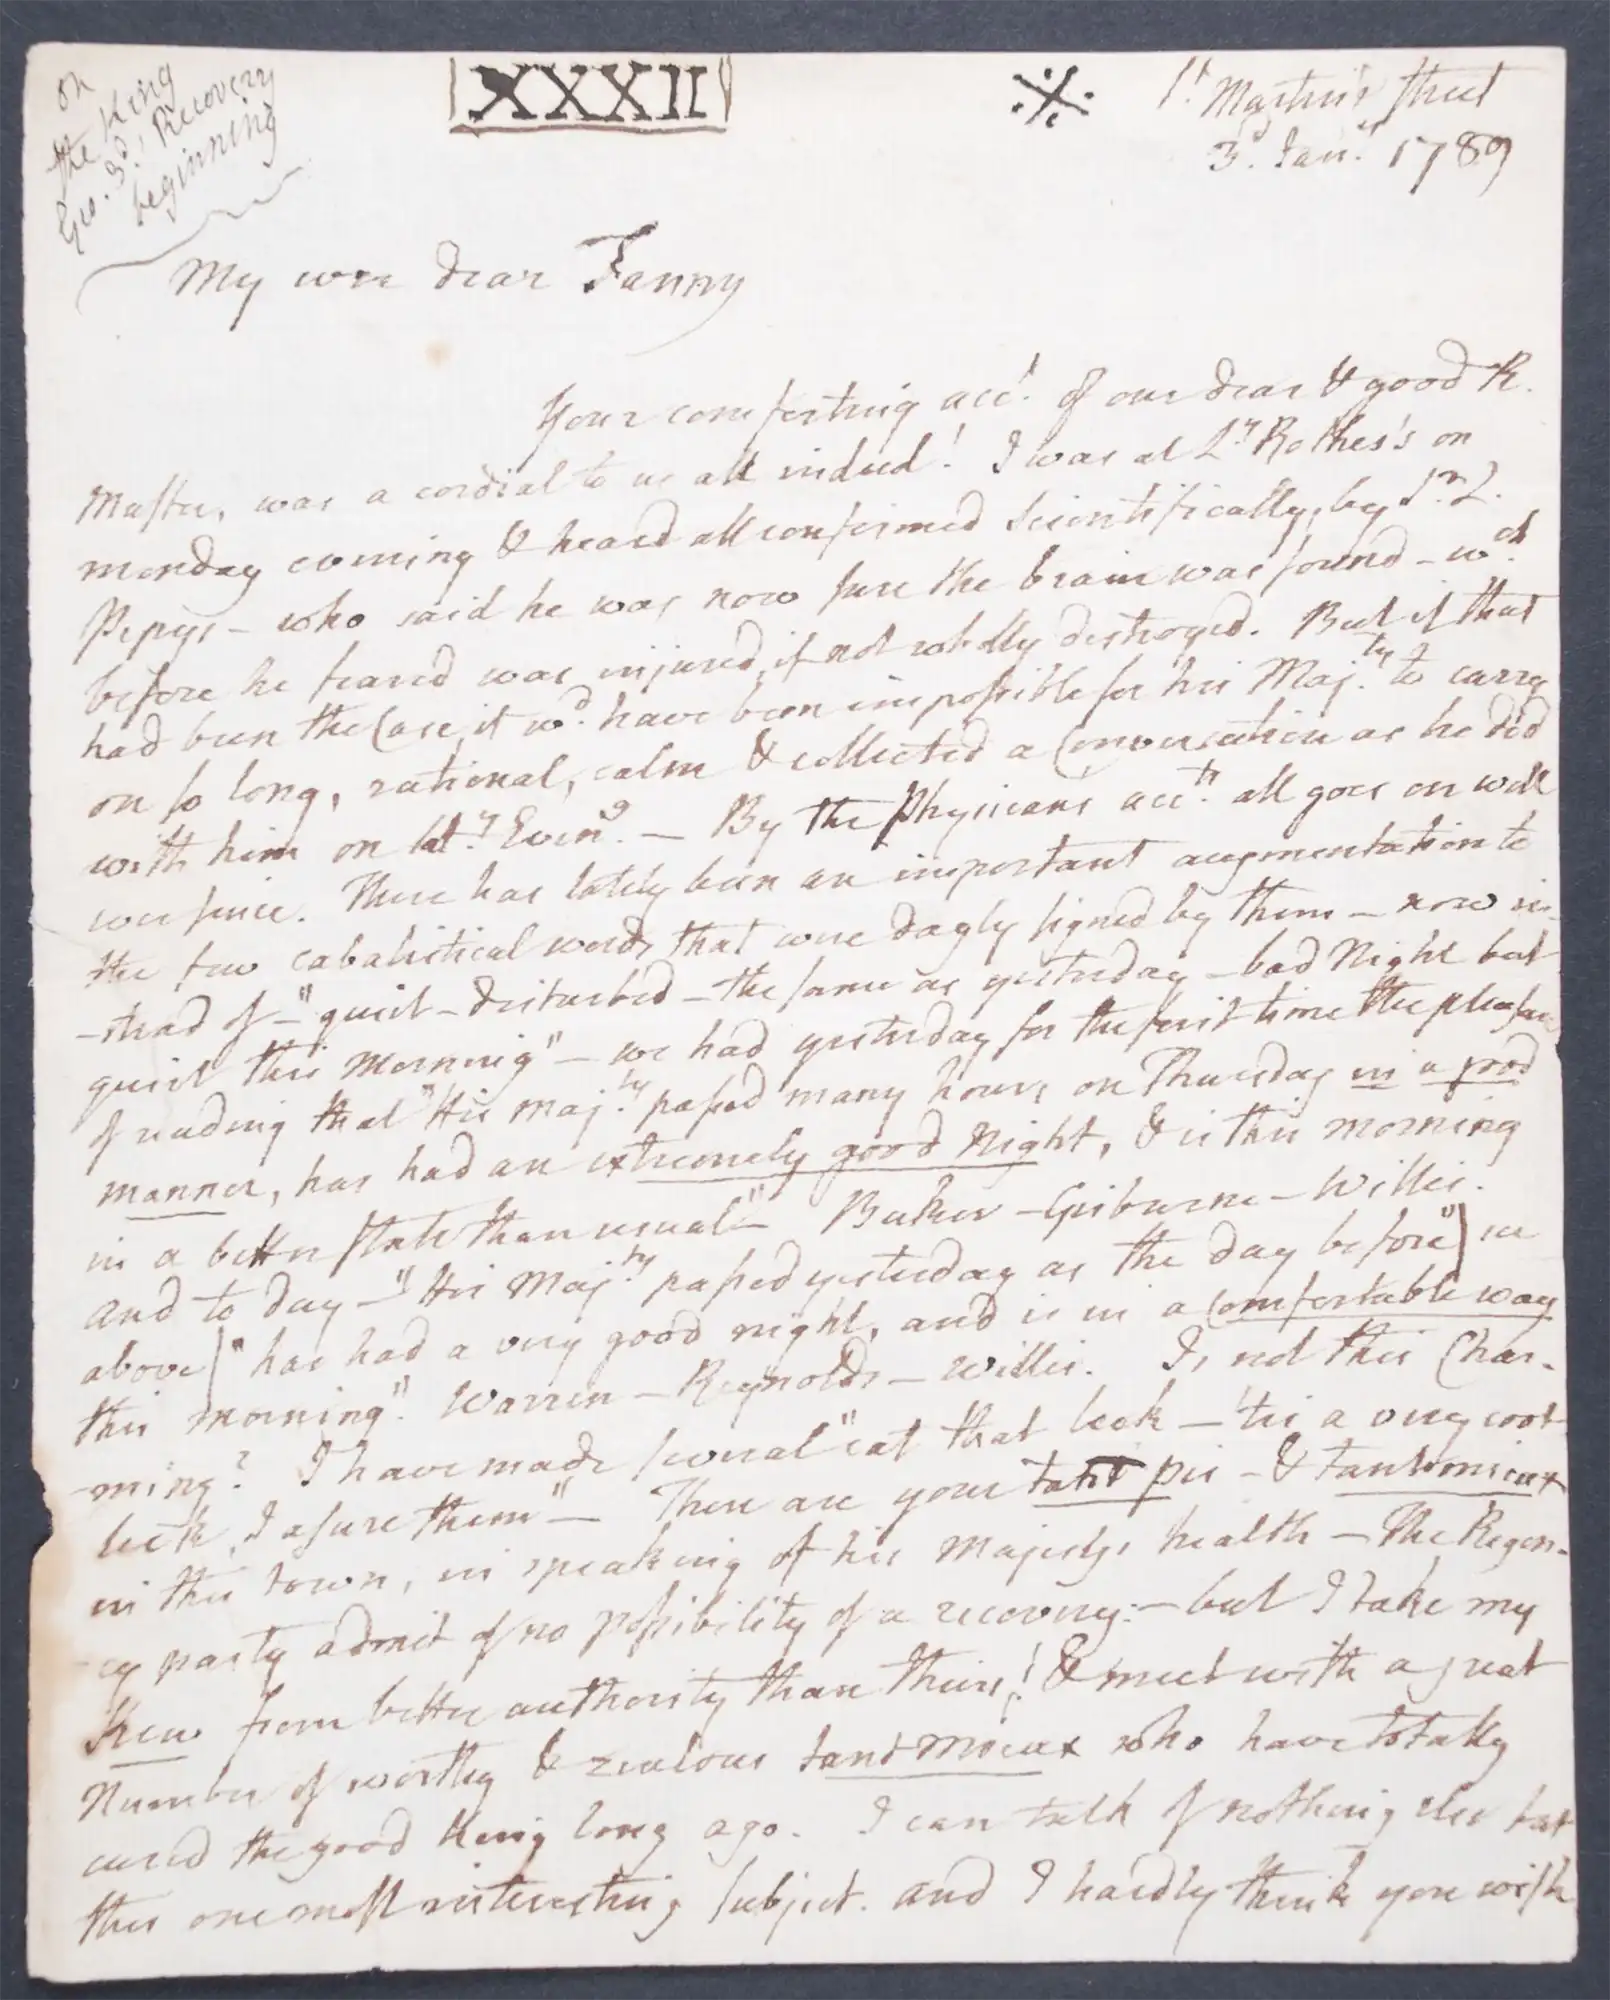 on
the King
Geo. 3d.'s Recovery
beginning
XXXII
St. Martin's Street
3d. Jany. 1789
My dear Fanny
Your comforting acct. of our dear & good R.
Master, was a cordial to us all indeed! I was at Ly Rothes's on
monday evening & heard all confirmed scientifically, by Sr. L.
Pepys – who said he was now sure the brain was sound – wch.
before he feared was injured, if not wholly destroyed. But if that
had been the Case, it wd. have been impossible for his Majty. to carry
on so long, rational, calm & collected a Conversation as he did
with him on Eveng. — By the Physicians accts. all goes on well
ever since. There has lately been an important augmentation to
the few cabalistical words that were dayly signed by them – now in-
-stead of – "quiet – disturbed – the same as yesterday – bad Night but
quiet this morning" – we had yesterday for the first time the pleasure
of reading that "His Majty. passed many hours on Thursday in a good
manner, has had an extremely good Night, & is this morning
in a better state than usual" – Baker – Gisburne – Willis.
and to day – "His Majty. passed yesterday as the day before" (see
above) "has had a very good night, and is in a Comfortable way
this morning". Warren – Reynolds – Willis. Is not this Char-
-ming? I have made several "eat that leek – 'tis a very good
leek, I assure them" – There are your tant pis – & tant mieux
in this town, in speaking of his Majestys health – The Regen-
-cy party admit of no possibility of a recovery: – but I take my
from better authority than theirs! & meet with a great
Number of worthy & zealous tant mieux who have totally
cured the good King long ago. I can talk of nothing else but
this one most interesting subject. and I hardly think you wish